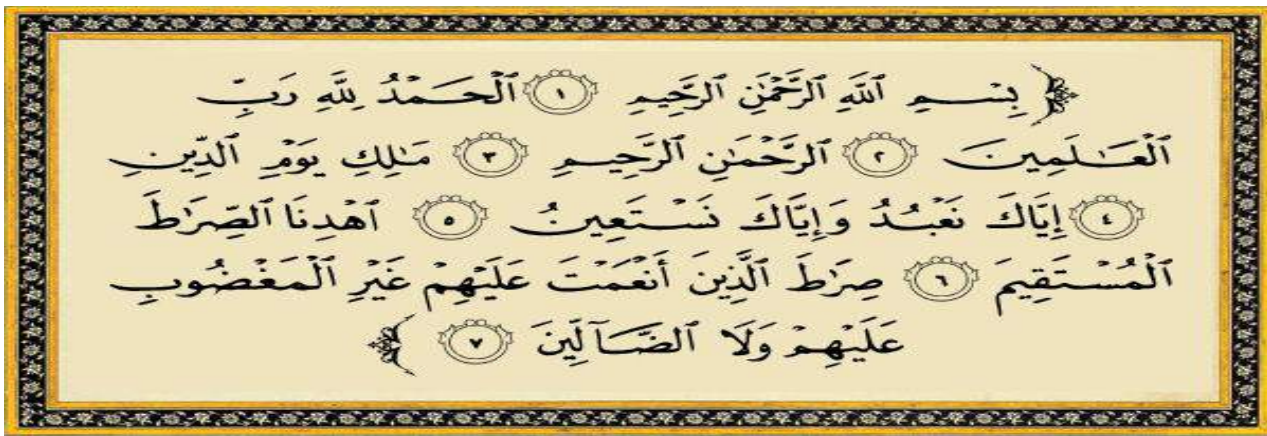 ﴿ بِسْمِ ٱللَّهِ ٱلرَّحْمَٰنِ ٱلرَّحِيمِ ١ ٱلْحَمْدُ لِلَّهِ رَبِّ
ٱلْعَـٰلَمِينَ ٢ ٱلرَّحْمَـٰنِ ٱلرَّحِيمِ ٣ مَـٰلِكِ يَوْمِ ٱلدِّينِ
٤ إِيَّاكَ نَعْبُدُ وَإِيَّاكَ نَسْتَعِينُ ٥ ٱهْدِنَا ٱلصِّرَٰطَ
ٱلْمُسْتَقِيمَ ٦ صِرَٰطَ ٱلَّذِينَ أَنْعَمْتَ عَلَيْهِمْ غَيْرِ ٱلْمَغْضُوبِ
عَلَيْهِمْ وَلَا ٱلضَّآلِّينَ ٧ ﴾